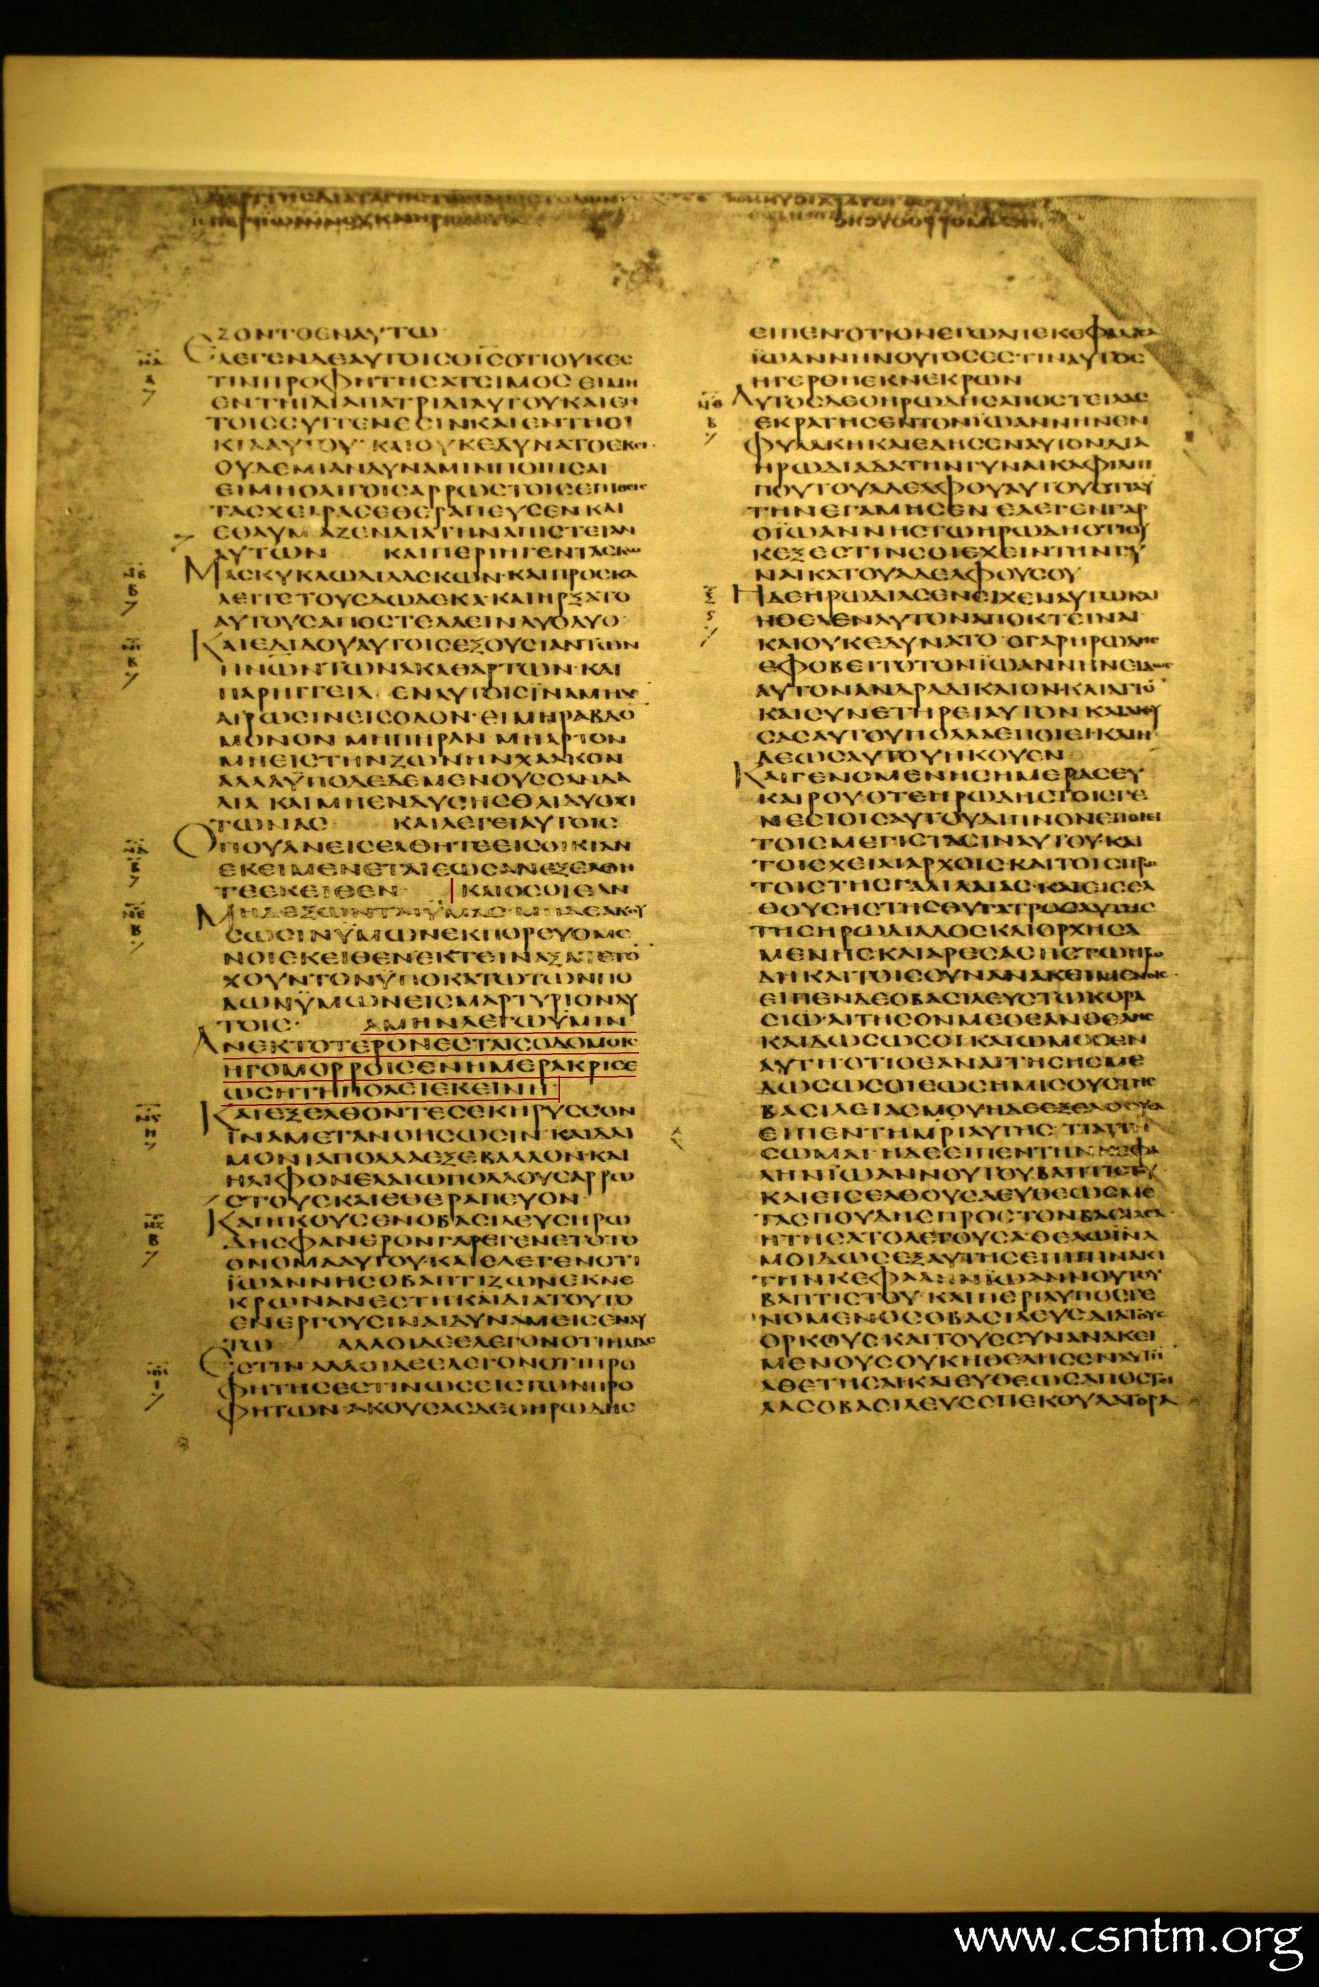 ΖΟΝΤΟΕΝΑΥΤΩ
ΕΛΕΓΕΝΔΕΑΥΤΟΙϹΟΙ̅Ϲ̅ΟΤΙΟΥΚΕϹ
ΤΙΝΠΡΟΦΗΤΗϹΑΤΕΙΜΟϹ ΕΙΜΗ
ΕΝΤΗΙΔΙΑΠΑΤΡΙΔΙΑΥΤΟΥΚΑΙΕΝ
ΤΟΙϹϹΥΓΓΕΝΕϹΙΝΚΑΙΕΝΤΗΟΙ
ΚΙΑΑΥΤΟΥ· ΚΑΙΟΥΚΕΔΥΝΑΤΟΕΚΕΙ
ΟΥΔΕΜΙΑΝΔΥΝΑΜΙΝΠΟΙΗϹΑΙ
ΕΙΜΗΟΛΙΓΟΙϹΑΡΡΩϹΤΟΙϹΕΠΙΘΕΙϹ
ΤΑϹΧΕΙΡΑϹΕΘΕΡΑΠΕΥϹΕΝ ΚΑΙ
ΕΘΑΥΜΑΖΕΝΔΙΑΤΗΝΑΠΙϹΤΕΙΑΝ
ΑΥΤΩΝ ΚΑΙΠΕΡΙΗΓΕΝΤΑϹΚΩ
ΜΑϹΚΥΚΛΩΔΙΔΑϹΚΩΝ· ΚΑΙΠΡΟϹΚΑ
ΛΕΙΤΕΤΟΥϹΔΩΔΕΚΑ· ΚΑΙΗΡΞΑΤΟ
ΑΥΤΟΥϹΑΠΟϹΤΕΛΛΕΙΝΔΥΟΔΥΟ·
ΚΑΙΕΔΙΔΟΥΑΥΤΟΙϹΕΞΟΥϹΙΑΝΤΩΝ
Π̅Ν̅Ω̅Ν̅ΤΩΝΑΚΑΘΑΡΤΩΝ· ΚΑΙ
ΠΑΡΗΓΓΕΙΛΕΝΑΥΤΟΙϹΙΝΑΜΗΔΕ
ΑΙΡΩϹΙΝΕΙϹΟΔΟΝ· ΕΙΜΗΡΑΒΔΟ̅
ΜΟΝΟΝ ΜΗΠΗΡΑΝ ΜΗΑΡΤΟΝ
ΜΗΕΙϹΤΗΝΖΩΝΗΝΧΑΛΚΟΝ
ΑΛΛΑΫΠΟΔΕΔΕΜΕΝΟΥϹϹΑΝΔΑ
ΛΙΑ ΚΑΙΜΗΕΝΔΥϹΗϹΘΑΙΔΥΟΧΙ
ΤΩΝΑϹ ΚΑΙΛΕΓΕΙΑΥΤΟΙϹ
ΟΠΟΥΑΝΕΙϹΕΛΘΗΤΕΕΙϹΟΙΚΙΑΝ
ΕΚΕΙΜΕΝΕΤΑΙΕΩϹΑΝΕΞΕΛΘΗ
ΤΕΕΚΕΙΘΕΝ ΚΑΙΟϹΟΙΕΑΝ
ΜΗΔΕΞΩΝΤΑΙΫΜΑϹ ΜΗΔΕΑΚΟΥ
ϹΩϹΙΝΫΜΩΝΕΚΠΟΡΕΥΟΜΕ
ΝΟΙΕΚΕΙΘΕΝΕΚΤΕΙΝΑΞΑΤΕΤΟ̅
ΧΟΥΝΤΟΝΫΠΟΚΑΤΩΤΩΝΠΟ
ΔΩΝΫΜΩΝΕΙϹΜΑΡΤΥΡΙΟΝΑΥ
ΤΟΙϹ· ΑΜΗΝΛΕΓΩΫΜΙΝ
ΑΝΕΚΤΟΤΕΡΟΝΕϹΤΑΙϹΟΔΟΜΟΙϹ
ΗΓΟΜΟΡΡΟΙϹΕΝΗΜΕΡΑΚΡΙϹΕ
ΩϹΗΤΗΠΟΛΕΙΕΚΕΙΝΗ
ΚΑΙΕΞΕΛΘΟΝΤΕϹΕΚΗΡΥϹϹΟΝ
ΪΝΑΜΕΤΑΝΟΗϹΩϹΙΝ· ΚΑΙΔΑΙ
ΜΟΝΙΑΠΟΛΛΑΕΞΕΒΑΛΛΟΝ· ΚΑΙ
ΗΛΙΦΟΝΕΛΑΙΩΠΟΛΛΟΥϹΑΡΡΩ
ϹΤΟΥϹΚΑΙΕΘΕΡΑΠΕΥΟΝ
ΚΑΙΗΚΟΥϹΕΝΟΒΑϹΙΛΕΥϹΗΡΩ
ΔΗϹΦΑΝΕΡΟΝΓΑΡΕΓΕΝΕΤΟΤΟ
ΟΝΟΜΑΑΥΤΟΥ· ΚΑΙΕΛΕΓΕΝΟΤΙ
ΪΩΑΝΝΗϹΟΒΑΠΤΙΖΩΝΕΚΝΕ
ΚΡΩΝΑΝΕϹΤΗ· ΚΑΙΔΙΑΤΟΥΤΟ
ΕΝΕΡΓΟΥϹΙΝΑΙΔΥΝΑΜΕΙϹΕΝΑΥ
ΤΩ ΑΛΛΟΙΔΕΕΛΕΓΟΝΟΤΙΗΛΙΑϹ
ΕϹΤΙΝ ΑΛΛΟΙΔΕΕΛΕΓΟΝΟΤΙΠΡΟ
ΦΗΤΗϹΕϹΤΙΝΩϹΕΙϹΤΩΝΠΡΟ
ΦΗΤΩΝ· ΑΚΟΥϹΑϹΔΕΟΗΡΩΔΗϹ
ΕΙΠΕΝΟΤΙΟΝΕΓΩΑΠΕΚΕΦΑΛΙϹΑ
ΪΩΑΝΝΗΝΟΥΤΟϹΕϹΤΙΝΑΥΤΟϹ
ΗΓΕΡΘΗΕΚΝΕΚΡΩΝ
ΑΥΤΟϹΔΕΟΗΡΩΔΗϹΑΠΟϹΤΕΙΛΑϹ
ΕΚΡΑΤΗϹΕΝΤΟΝΪΩΑΝΝΗΝΕΝ
ΦΥΛΑΚΗΚΑΙΕΔΗϹΕΝΑΥΤΟΝΔΙΑ
ΗΡΩΔΙΑΔΑΤΗΝΓΥΝΑΙΚΑΦΙΛΙΠ
ΠΟΥΤΟΥΑΔΕΛΦΟΥΑΥΤΟΥΟΤΙΑΥ
ΤΗΝΕΓΑΜΗϹΕΝ ΕΛΕΓΕΝΓΑΡ
ΟΪΩΑΝΝΗϹΤΩΗΡΩΔΗΟΤΙΟΥ
ΚΕΞΕϹΤΙΝϹΟΙΕΧΕΙΝΤΗΝΓΥ
ΝΑΙΚΑΤΟΥΑΔΕΛΦΟΥϹΟΥ
ΗΔΕΗΡΩΔΙΑϹΕΝΕΙΧΕΝΑΥΤΩΚΑΙ
ΗΘΕΛΕΝΑΥΤΟΝΑΠΟΚΤΕΙΝΑΙ
ΚΑΙΟΥΚΕΔΥΝΑΤΟ· ΟΓΑΡΗΡΩΔΗϹ
ΕΦΟΒΕΙΤΟΤΟΝΪΩΑΝΝΗΝΕΙΔΩϹ
ΑΥΤΟΝΑΝΔΡΑΔΙΚΑΙΟΝ· ΚΑΙΑΓΙΟ̅
ΚΑΙϹΥΝΕΤΗΡΕΙΑΥΤΟΝ ΚΑΙΑΚΟΥ
ϹΑϹΑΥΤΟΥΠΟΛΛΑΕΠΟΙΕΙ· ΚΑΙΗ
ΔΕΩϹΑΥΤΟΥΗΚΟΥΕΝ
ΚΑΙΓΕΝΟΜΕΝΗϹΗΜΕΡΑϹΕΥ
ΚΑΙΡΟΥ· ΟΤΕΗΡΩΔΗϹΤΟΙϹΓΕ
ΝΕϹΙΟΙϹΑΥΤΟΥΔΙΠΝΟΝΕΠΟΙΕΙ
ΤΟΙϹΜΕΓΙϹΤΑϹΙΝΑΥΤΟΥ· ΚΑΙ
ΤΟΙϹΧΕΙΛΙΑΡΧΟΙϹ ΚΑΙΤΟΙϹΠΡΩ
ΤΟΙϹΤΗϹΓΑΛΙΛΑΙΑϹ· ΚΑΙΕΙϹΕΛ
ΘΟΥϹΗϹΤΗϹΘΥΓΑΤΡΟϹΑΥΤΗϹ
ΤΗϹΗΡΩΔΙΑΔΟϹΚΑΙΟΡΧΗϹΑ
ΜΕΝΗϹΚΑΙΑΡΕϹΑϹΗϹΤΩΗΡΩ
ΔΗΚΑΙΤΟΙϹϹΥΝΑΝΑΚΕΙΜΕΝΟΙϹ·
ΕΙΠΕΝΔΕΟΒΑϹΙΛΕΥϹΤΩΚΟΡΑ
ϹΙΩ· ΑΙΤΗϹΟΝΜΕΟΕΑΝΘΕΛΗϹ
ΚΑΙΔΩϹΩϹΟΙ· ΚΑΙΩΜΟϹΕΝ
ΑΥΤΗΟΤΙΟΕΑΝΑΙΤΗϹΗϹΜΕ
ΔΩϹΩϹΟΙΕΩϹΗΜΙϹΟΥϹΤΗϹ
ΒΑϹΙΛΕΙΑϹΜΟΥΗΔΕΕΞΕΛΘΟΥϹΑ
ΕΙΠΕΝΤΗΜΡΙΑΥΤΗϹ ΤΙΑΙΤΗ
ϹΩΜΑΙ· ΗΔΕΕΙΠΕΝΤΗΝΚΕΦΑ
ΛΗΝΪΩΑΝΝΟΥΤΟΥΒΑΠΤΙϹΤΟΥ
ΚΑΙΕΙϹΕΛΘΟΥϹΑΕΥΘΕΩϹΜΕ
ΤΑϹΠΟΥΔΗϹΠΡΟϹΤΟΝΒΑϹΙΛΕΑ·
ΗΤΗϹΑΤΟΛΕΓΟΥϹΑΘΕΛΩΪΝΑ
ΜΟΙΔΩϹΕΞΑΥΤΗϹΕΠΙΠΙΝΑΚΙ
ΤΗΝΚΕΦΑΛΗΝΪΩΑΝΝΟΥΤΟΥ
ΒΑΠΤΙϹΤΟΥ· ΚΑΙΠΕΡΙΛΥΠΟϹΓΕ
ΝΟΜΕΝΟϹΟΒΑϹΙΛΕΥϹΔΙΑΤΟΥϹ
ΟΡΚΟΥϹ ΚΑΙΤΟΥϹϹΥΝΑΝΑΚΕΙ
ΜΕΝΟΥϹΟΥΚΗΘΕΛΗϹΕΝΑΥΤΗ̅
ΑΘΕΤΗϹΑΙ· ΚΑΙΕΥΘΕΩϹΑΠΟϹΤΙ
ΛΑϹΟΒΑϹΙΛΕΥϹϹΠΕΚΟΥΛΑΤΟΡΑ
www.csntm.org